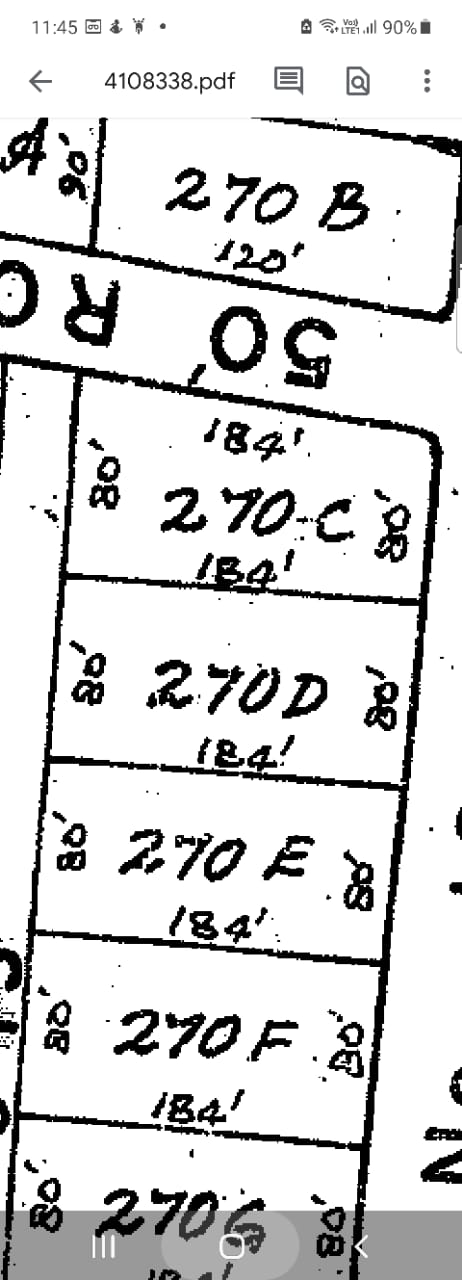 11:45 90%
4108338.pdf
A 90' 270 B
120'
50' RO
184'
80' 270-C 80'
184'
80' 270D 80'
184'
80' 270 E 80'
184'
80' 270 F 80'
184'
80' 270G 80'
184'